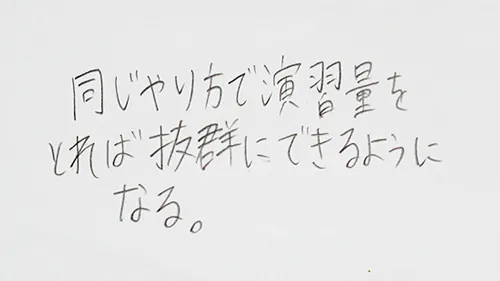 同じやり方で演習量を
とれば抜群にできるように
なる。